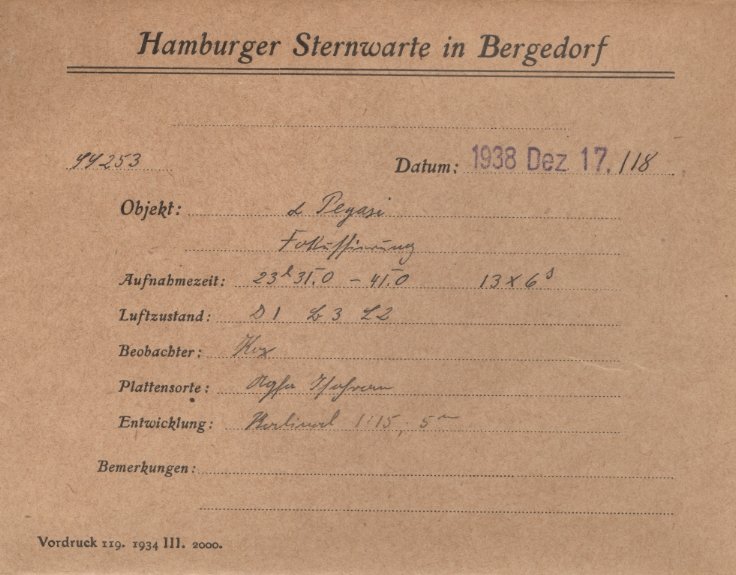 Hamburger Sternwarte in Bergedorf
253 Datum: 1938 Dez 17./18
Objekt: α Pegasi
Fokussierung
Aufnahmezeit: 23h 31m.0 – 41m.0 13 x 6s
Luftzustand: D 1 L 3 L 2
Beobachter:
Plattensorte: Agfa Isochrom
Entwicklung: Rodinal 1:15, 5m
Bemerkungen:
Vordruck 119. 1934 III. 2000.